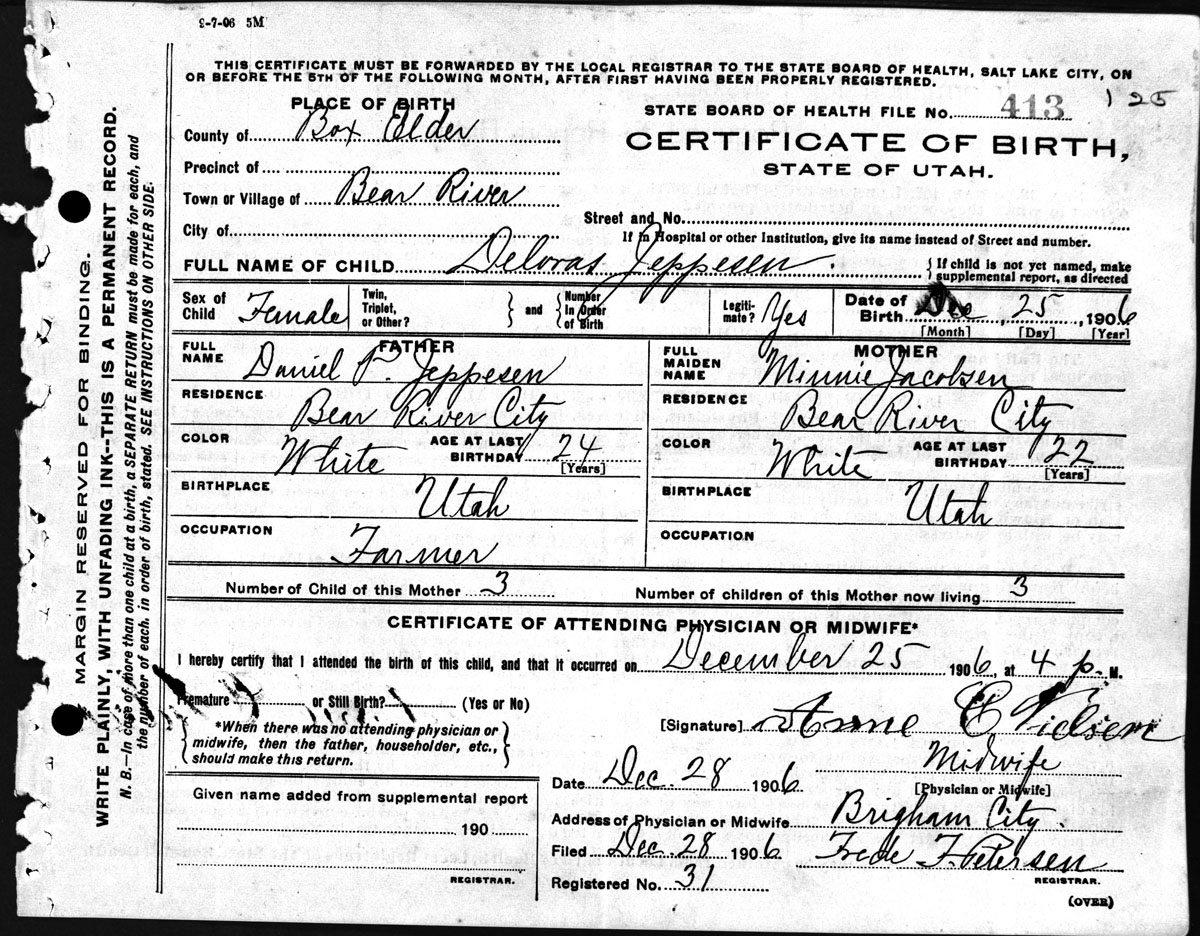 9-7-06 5M
THIS CERTIFICATE MUST BE FORWARDED BY THE LOCAL REGISTRAR TO THE STATE BOARD OF HEALTH, SALT LAKE CITY, ON
OR BEFORE THE 5TH OF THE FOLLOWING MONTH, AFTER FIRST HAVING BEEN PROPERLY REGISTERED.
MARGIN RESERVED FOR BINDING.
WRITE PLAINLY, WITH UNFADING INK--THIS IS A PERMANENT RECORD.
N. B.—In case of more than one child at a birth, a SEPARATE RETURN must be made for each, and
the number of each, in order of birth, stated. SEE INSTRUCTIONS ON OTHER SIDE.
PLACE OF BIRTH
County of Box Elder
Precinct of
Town or Village of Bear River
City of
STATE BOARD OF HEALTH FILE No. 413 125
CERTIFICATE OF BIRTH,
STATE OF UTAH.
Street and No.
If in Hospital or other Institution, give its name instead of Street and number.
FULL NAME OF CHILD Deloras Jeppesen. { If child is not yet named, make
supplemental report, as directed
Sex of Child Female
Twin, Triplet, or Other? } and { Number In Order of Birth
Legiti-mate? Yes
Date of Birth Dec, 25, 1906
[Month] [Day] [Year]
FATHER
FULL NAME Daniel P. Jeppesen
RESIDENCE Bear River City
COLOR White AGE AT LAST BIRTHDAY 24
[Years]
BIRTHPLACE Utah
OCCUPATION Farmer
MOTHER
FULL MAIDEN NAME Minnie Jacobsen
RESIDENCE Bear River City
COLOR White AGE AT LAST BIRTHDAY 22
[Years]
BIRTHPLACE Utah
OCCUPATION
Number of Child of this Mother 3
Number of children of this Mother now living 3
CERTIFICATE OF ATTENDING PHYSICIAN OR MIDWIFE*
I hereby certify that I attended the birth of this child, and that it occurred on December 25 1906, at 4 p. M.
Premature or Still Birth? (Yes or No)
{ *When there was no attending physician or
midwife, then the father, householder, etc.,
should make this return. }
[Signature] Anne C Nielsen
Midwife
[Physician or Midwife]
Date Dec. 28 1906
Address of Physician or Midwife Brigham City.
Filed Dec. 28 1906 Frede F. Petersen
REGISTRAR.
Registered No. 31
Given name added from supplemental report
190
REGISTRAR.
(OVER)